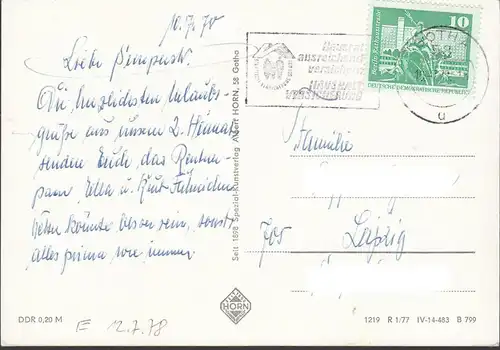 10.7.78
Liebe
Die herzlichsten Urlaubs-
grüße aus unserer 2. Heimat
senden Euch, das Rentner-
paar, Ella u. Kurt
Wetter könnte besser sein, sonst
alles prima, wie immer.
Seit 1898 Spezial-Kunstverlag Albert HORN, 58 Gotha
HORN
DDR 0,20 M
E 12.7.78
Hausrat
ausreichend
versichern
HAUSRAT
VERSICHERUNG
GOTHA
58
u
10
Berlin
DEUTSCHE DEMOKRATISCHE REPUBLIK
Familie
705 Leipzig
1219 R 1/77 IV-14-483 B 799